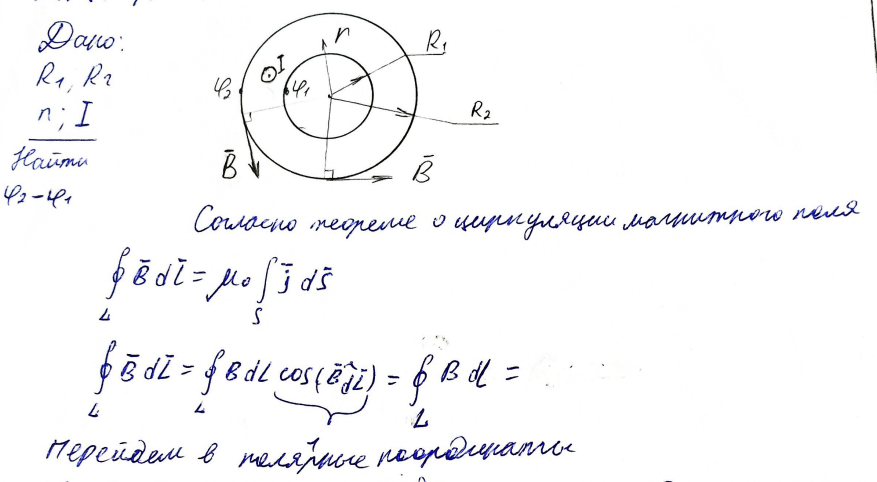 Дано:
R1, R2
n; I
Найти
φ2-φ1
n
R1
I
φ2
φ1
R2
B̄
B̄
Согласно теореме о циркуляции магнитного поля
∮ B̄ dL̄ = μ0 ∫ j̄ ds̄
L S
∮ B̄ dL̄ = ∮ B dL cos(B̄^dL̄) = ∮ B dL =
L L L
1
Перейдем в полярные координаты